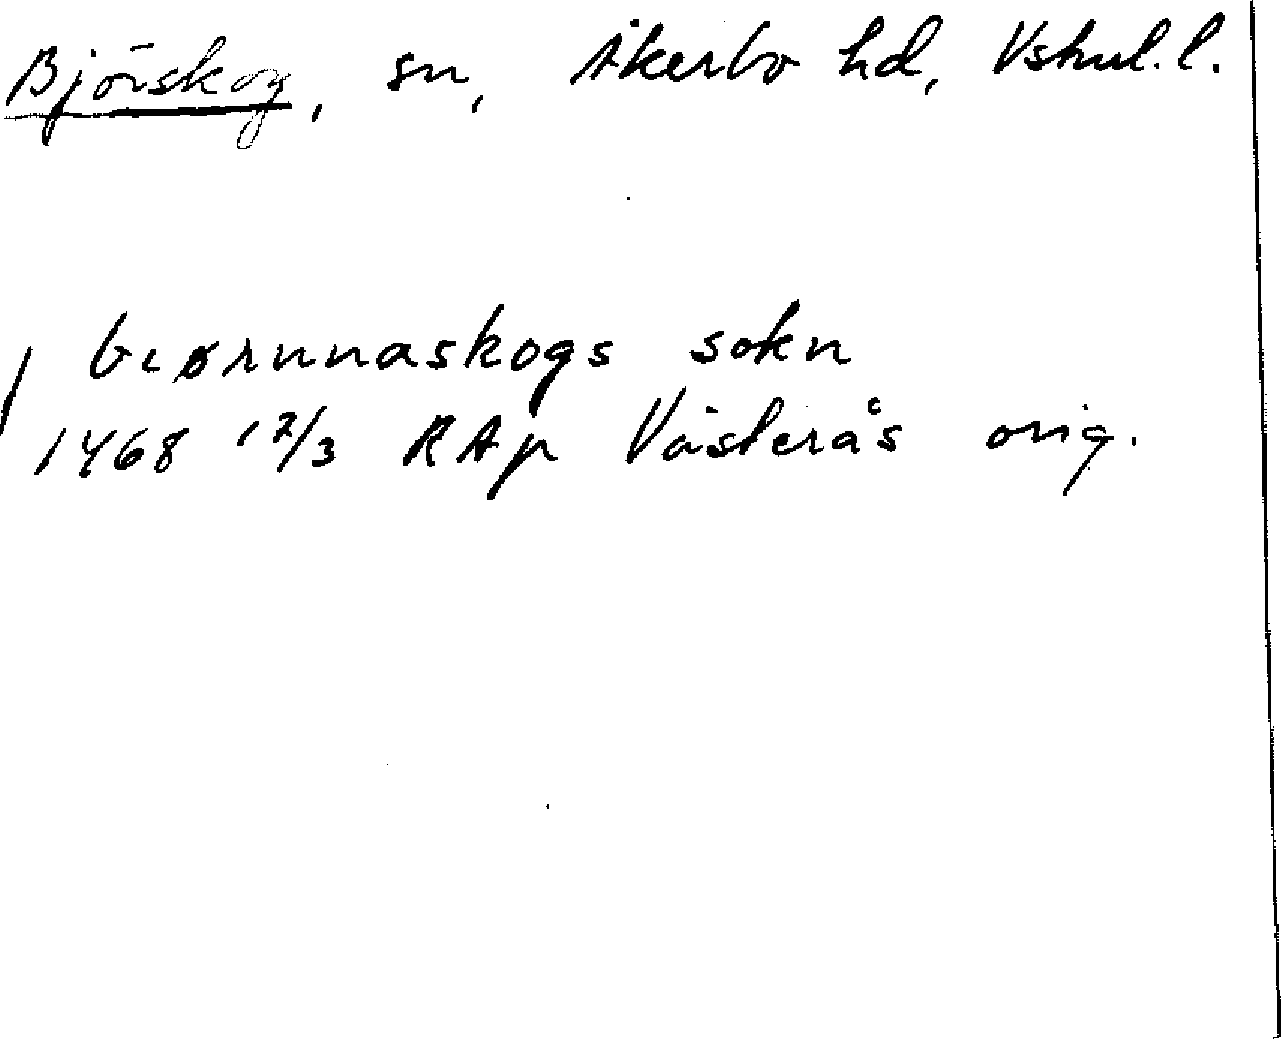 Björskog, sn, Åkerbo hd, Vstml. l.
biørnnaskogs sokn
1468 12/3 RAp Västerås orig.